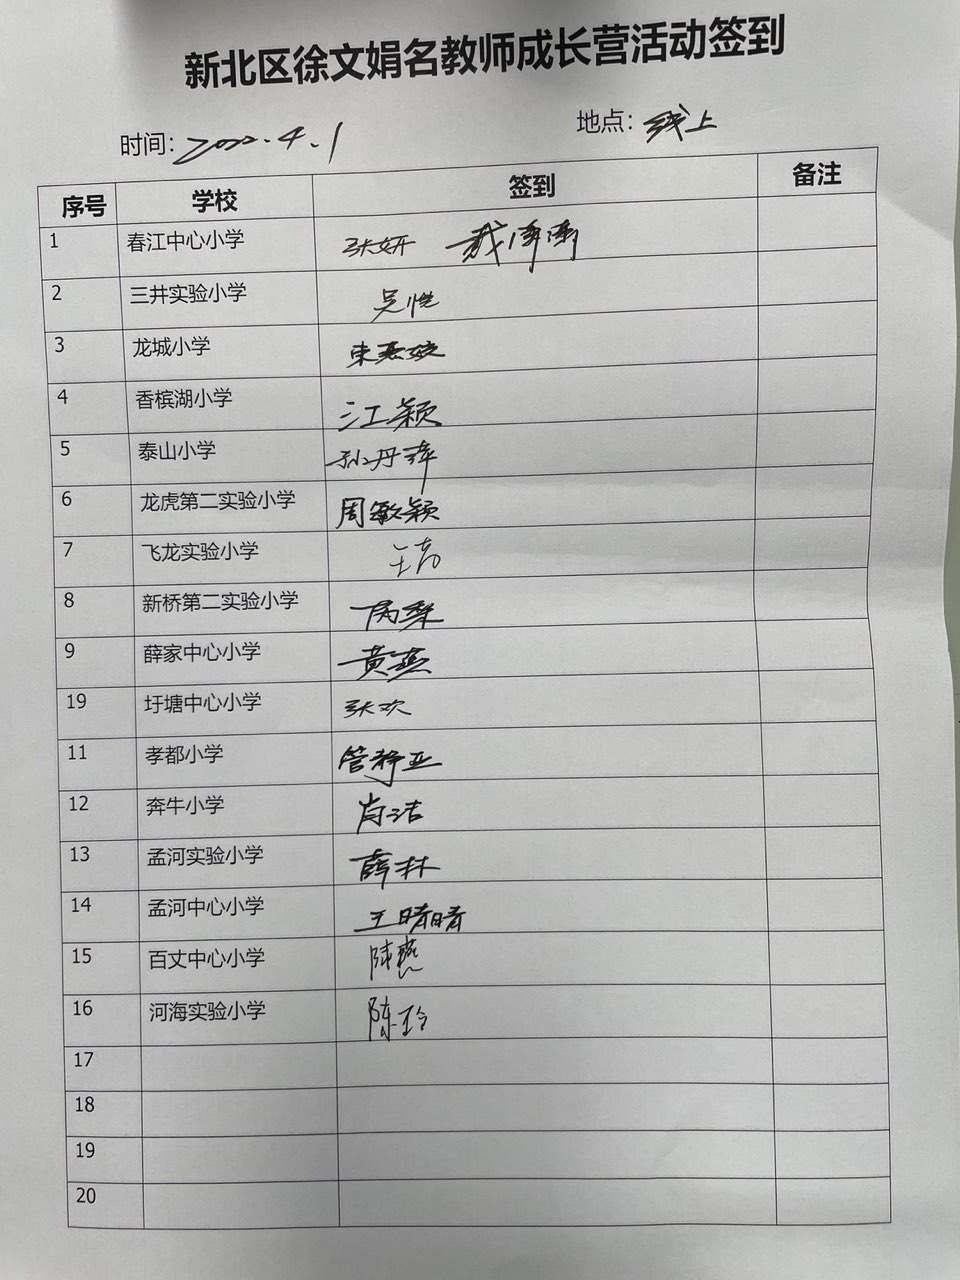 新北区徐文娟名教师成长营活动签到
时间：2022.4.1 地点：线上
序号 学校 签到 备注
1 春江中心小学 张妍
2 三井实验小学 吴悦
3 龙城小学
4 香槟湖小学 江颖
5 泰山小学 孙丹萍
6 龙虎第二实验小学 周敏颖
7 飞龙实验小学
8 新桥第二实验小学
9 薛家中心小学 黄燕
19 圩塘中心小学 张欢
11 孝都小学 管静亚
12 奔牛小学 肖洁
13 孟河实验小学 薛林
14 孟河中心小学 王晴晴
15 百丈中心小学 陆燕
16 河海实验小学 陈玲
17
18
19
20